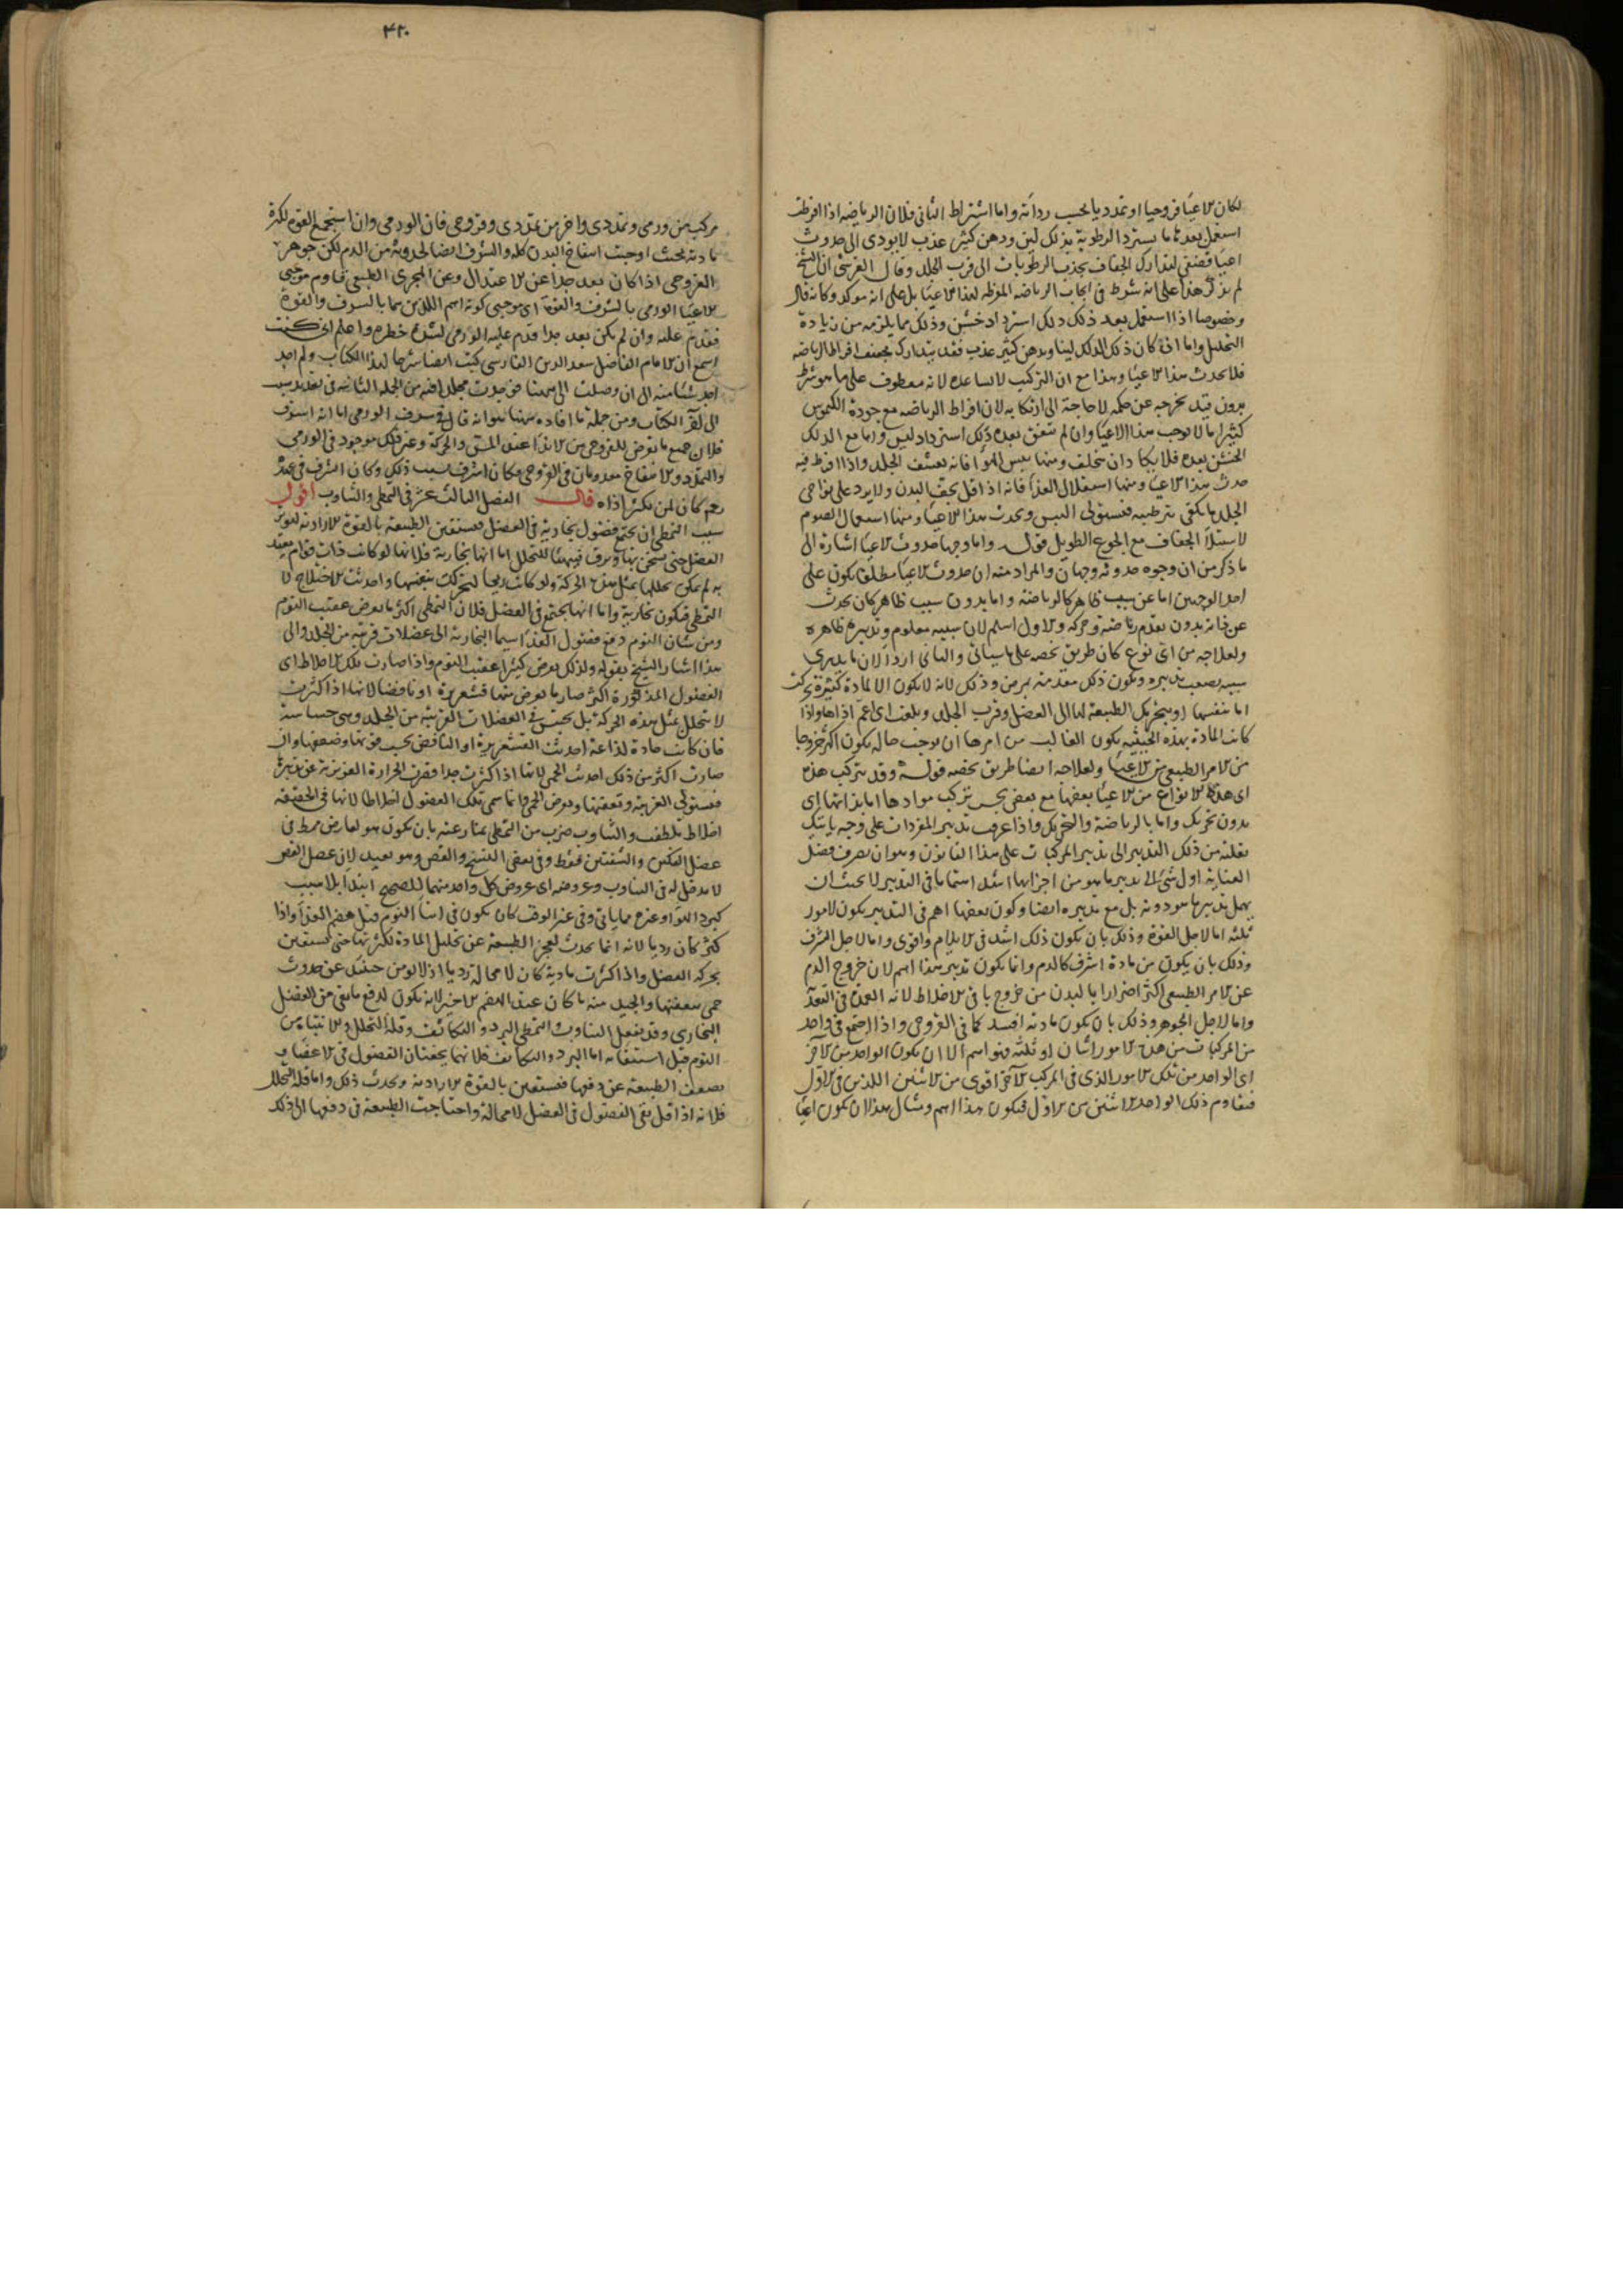 لكان الاعيا قروحيا او تمدديا بحسب رداته واما اشتراط الثانى فلان الرياضه اذا افرطت
استعمل بعدها ما يسترد الرطوبة بدلك لين ودهن كثير عذب لا يودى الى حدوث
اعيا قضفى لتدارك الجفاف بجذب الرطوبات الى قرب الجلد وقال القرشى ان الشيخ
لم يذكر هذا على انه شرط فى ايجاب الرياضه المفرطه لهذا الاعيا بل على انه موكد وكانه قال
وخصوصا اذا استعمل بعد ذلك دلك استرداد خشن وذلك مما يلزمه من زيادة
التحليل واما اذا كان ذلك الدلك لينا وبدهن كثير عذب فقد يتدارك تجفيف افراط الرياضه
فلا يحدث هذا الاعيا وهذا مع ان التركيب لا يساعده لانه معطوف على ما هو شرط
بدون قيد يخرجه عن حكمه لا حاجة الى ارتكابه لان افراط الرياضه مع جودة الكيموس
كثيرا ما لا يوجب هذا الاعيا وان لم يتفق بعده ذلك استرداد لين واما مع الدلك
الخشن بعده فلا يكاد ان يتخلف ومنها يبس الهوا فانه ينشف الجلد واذا افرط فيه
حدث هذا الاعيا ومنها استقلال الغذا فانه اذا قل يجف البدن ولا يرد على نواحى
الجلد ما يكفى ترطيبه فيستولى اليبس ويحدث هذا الاعيا ومنها استعمال الصوم
لاستيلا الجفاف مع الجوع الطويل قوله واما وجها حدوث الاعيا اشارة الى
ما ذكر من ان وجوه حدوثه وجهان والمراد منه ان حدوث الاعيا مطلقا يكون على
احد الوجهين اما عن سبب ظاهر كالرياضة واما بدون سبب ظاهر كان يحدث
عن ذاته بدون تقدم رياضة وحركه والاول اسلم لان سببه معلوم وتدبيره ظاهره
ولعلاجه من اى نوع كان طريق يخصه على ما سياتى والثانى اردا لان ما لا يدرى
سببه يصعب تدبيره ويكون ذلك مقدمة مرض وذلك لانه لا يكون الا لمادة كثيرة تحركت
اما بنفسها او بتحريك الطبيعة لها الى العضل وقرب الجلد وبلغت اى اعم اذاها واذا
كانت المادة بهذه الحيثيه يكون الغالب من امرها ان يوجب حاله يكون اكثر خروجا
من الامر الطبيعى من الاعيا ولعلاجه ايضا طريق يخصه قوله وقد يتركب هذه
اى هذه الانواع من الاعيا بعضها مع بعض بحسب تركب موادها اما بذاتها اى
بدون تحريك واما بالرياضة والتحريك واذا عرفت تدبير المفردات على وجه ياتيك
نقلته من ذلك التدبير الى تدبير المركبات على هذا القانون وهو ان يصرف فضل
العناية اول شى الى تدبير ما هو من اجزائها اشد اهتماما فى التدبير لا بحيث ان
يهمل تدبير ما هو دونه بل مع تدبيره ايضا وكون بعضها اهم فى التدبير يكون لامور
ثلثه اما لاجل القوة وذلك بان يكون ذلك اشد فى الايلام واقوى واما لاجل الشرف
وذلك بان يكون من مادة اشرف كالدم وانما يكون تدبير هذا اهم لان خروج الدم
عن الامر الطبيعى اكثر اضرارا بالبدن من خروج باقى الاخلاط لانه العمدة فى التغذ
واما لاجل الجوهر وذلك بان يكون مادته افسد كما فى القروحى واذا اجتمع فى واحد
من المركبات من هذه الامور اثنان او ثلثه فهو اهم الا ان يكون الواحد من الآخر
اى الواحد من تلك الامور الذى فى المركب الآخر اقوى من الاثنين اللذين فى الاول
فيقاوم ذلك الواحد الاثنين من الاول فيكون هذا اهم ومثال هذا ان يكون اعيا
۴۲۰
مركب من ورمى وتمددى واخر من تمددى وقروحى فان الورمى وان استجمع القوه لكثرة
مادته بحيث اوجبت انتفاخ البدن كله والشرف ايضا لحدوثه من الدم لكن جوهر
القروحى اذا كان بعد جدا عن الاعتدال وعن المجرى الطبيعى قاوم موجبى
الاعيا الورمى بالشرف والقوة اى موجبى كونه اهم اللذين هما بالشرف والقوة
فقدم عليه وان لم يكن بعد جدا قدم عليه الورمى لشدة خطره واعلم انى كنت
اسمع ان الامام الفاضل سعد الدين الفارسى كتب ايضا شرحا لهذا الكتاب ولم اجد
احد شيا منه الى ان وصلت الى ههنا فوجدت مجلدا فيه من الجملة الثانيه فى تعديد سبب
الى آخر الكتاب ومن جملة ما افاده ههنا هو انه قال فى شرف الورمى اما انه اشرف
فلان جميع ما يعرض للقروحى من الاذا عند المس والحركة وغير ذلك موجود فى الورمى
والتمدد والانتفاخ معدومان فى القروحى فكان اشرف بسبب ذلك وكان اشرف فى عنده
نعم كان لمن يكثر اذاه قال الفصل الثالث عشر فى التمطى والتثاوب اقول
سبب التمطى ان يجتمع فضول بخارية فى العضل فيستعين الطبيعة بالقوة الارادية لتحريك
العضل حتى يسخن بها ويرق فيتهيا للتحلل اما انها بخارية فلانها لو كانت ذات قوام يعتد
به لم يمكن تحللها بمثل هذه الحركة ولو كانت ريحا لتحركت بنفسها واحدثت الاختلاج لا
التمطى فيكون بخارية واما انها يجتمع فى العضل فلان التمطى اكثر ما يعرض عقيب النوم
ومن شان النوم دفع فضول الغذا سيما البخارية الى عضلات قريبة من الجلد والى
هذا اشار الشيخ بقوله ولذلك يعرض كثيرا عقيب النوم واذا صارت تلك الاخلاط اى
الفضول المذكورة اكثر صار ما يعرض منها قشعريرة او نافضا لانها اذا كثرت
لا يتحلل بمثل هذه الحركة بل يحتبس فى العضلات القريبة من الجلد وهى حساسة
فان كانت حادة لذاعة احدثت القشعريرة او النافض بحسب قوتها وضعفها وان
صارت اكثر من ذلك احدثت الحمى لانها اذا كثرت جدا قصرت الحرارة الغريزية عن تدبيرها
فيستولى الغريبة وتعفنها ويعرض الحمى وانما سمى تلك الفضول اخلاطا لانها فى الحقيقه
اخلاط تلطفت والتثاوب ضرب من التمطى يمتاز عنه بان يكون هو لعارض ممط فى
عضل الفكين والشفتين فقط وفى بعض النسخ والقص وهو بعيد لان عضل القص
لا مدخل له فى التثاوب وعروضه اى عروض كل واحد منهما للصحيح ابتدا بلا سبب
كبرد الهوا وغيره مما ياتى وفى غير الوقت كان يكون فى اثنا النوم قبل هضم الغذا واذا
كثر كان رديا لانه انما يحدث لعجز الطبيعة عن تحليل المادة لكثرتها حتى يستعين
بحركه العضل واذا كثرت مادية كان لا محالة رديا اذ لا يومن حينئذ عن حدوث
حمى تعفنها والجيد منه ما كان عند الهضم الاخير لانه يكون لدفع ما بقى من الفضل
البخارى وقد يفعل التثاوب والتمطى البرد والتكاثف وقلة التحلل والانتباه من
النوم قبل استيفائه اما البرد والتكاثف فلانهما يحقنان الفضول فى الاعضا و
يضعف الطبيعة عن دفعها فيستعين بالقوة الارادية ويحدث ذلك واما قلة التحلل
فلانه اذا قل بقى الفضول فى العضل لا محالة واحتاجت الطبيعة فى دفعها الى ذلك